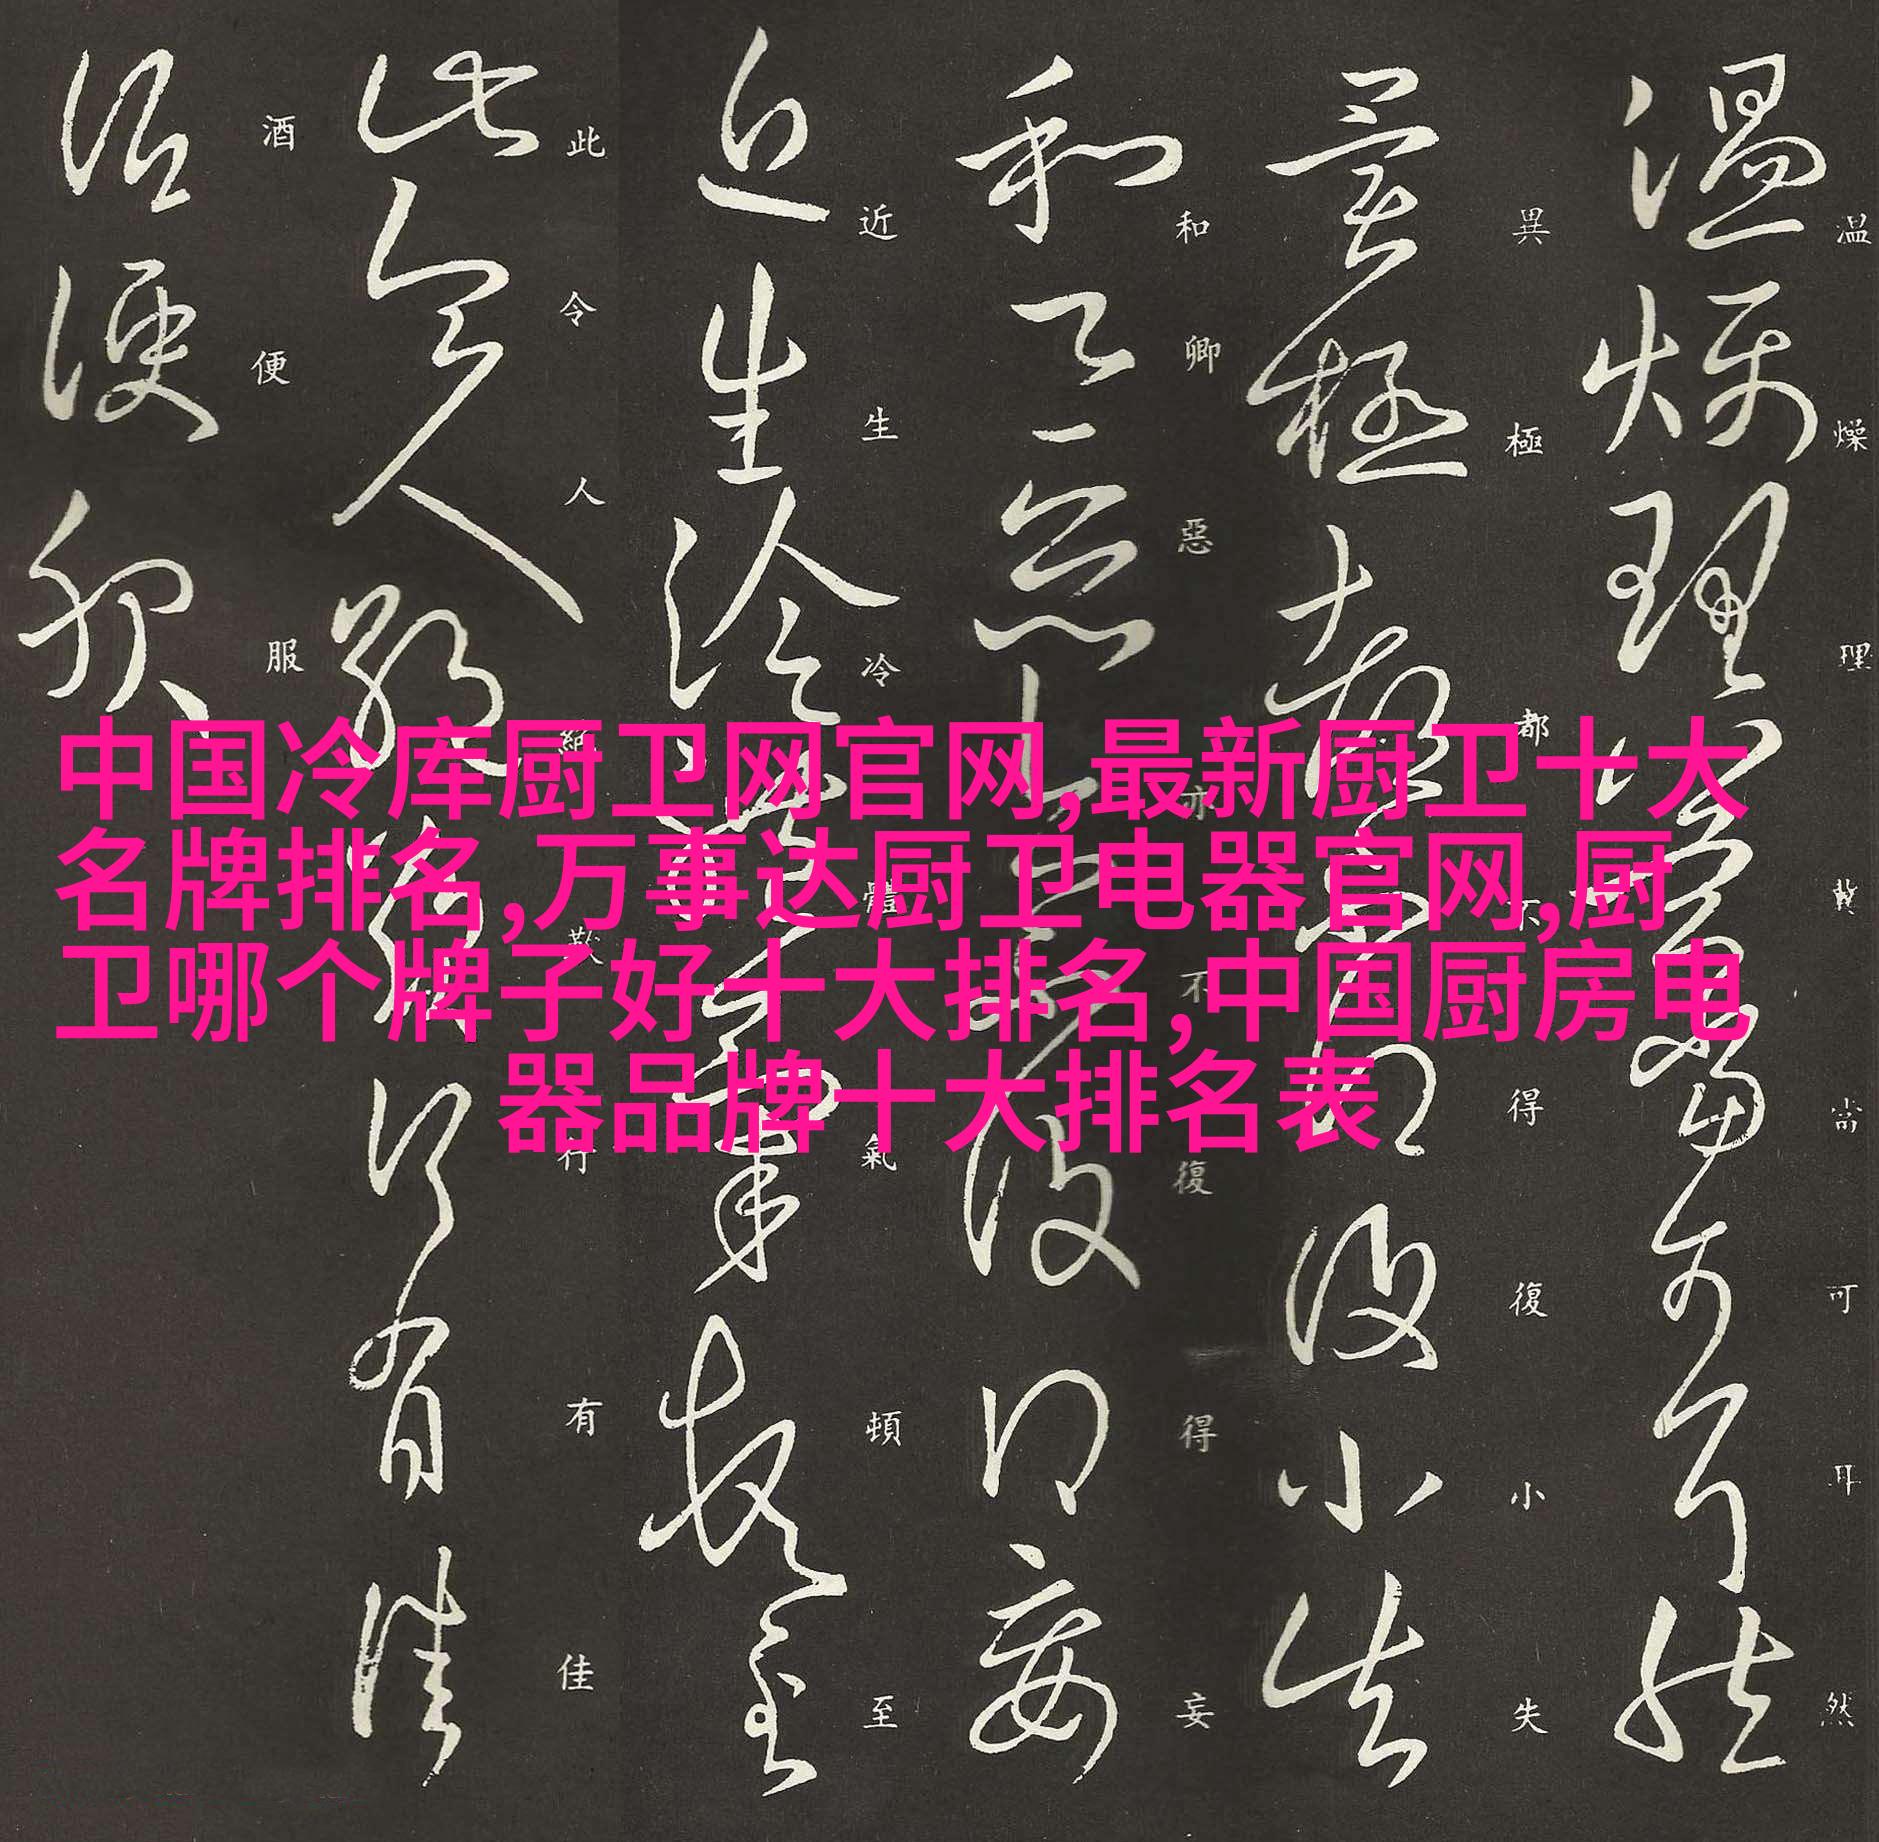 中国冷库厨卫网官网,最新厨卫十大
名牌排名,万事达厨卫电器官网,厨
卫哪个牌子好十大排名,中国厨房电
器品牌十大排名表
温燥理冀當可耳然
異極都不得復小失
和卿惡亦不復得妄
近生冷體氣頓至
此令人絕歎行有佳
酒便服